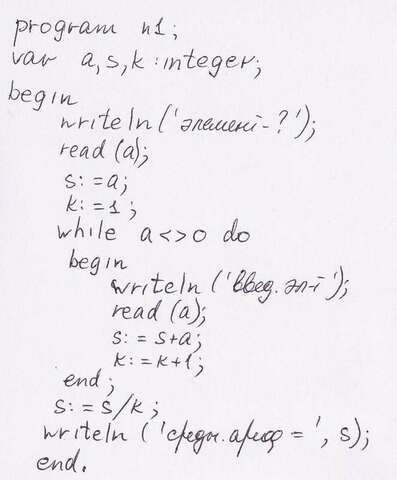 program n1;
var a,s,k:integer;
begin
writeln('элемент-?');
read(a);
s:=a;
k:=1;
while a<>0 do
begin
writeln('введ. эл-т');
read(a);
s:=s+a;
k:=k+1;
end;
s:=s/k;
writeln('средн. ариф=', s);
end.